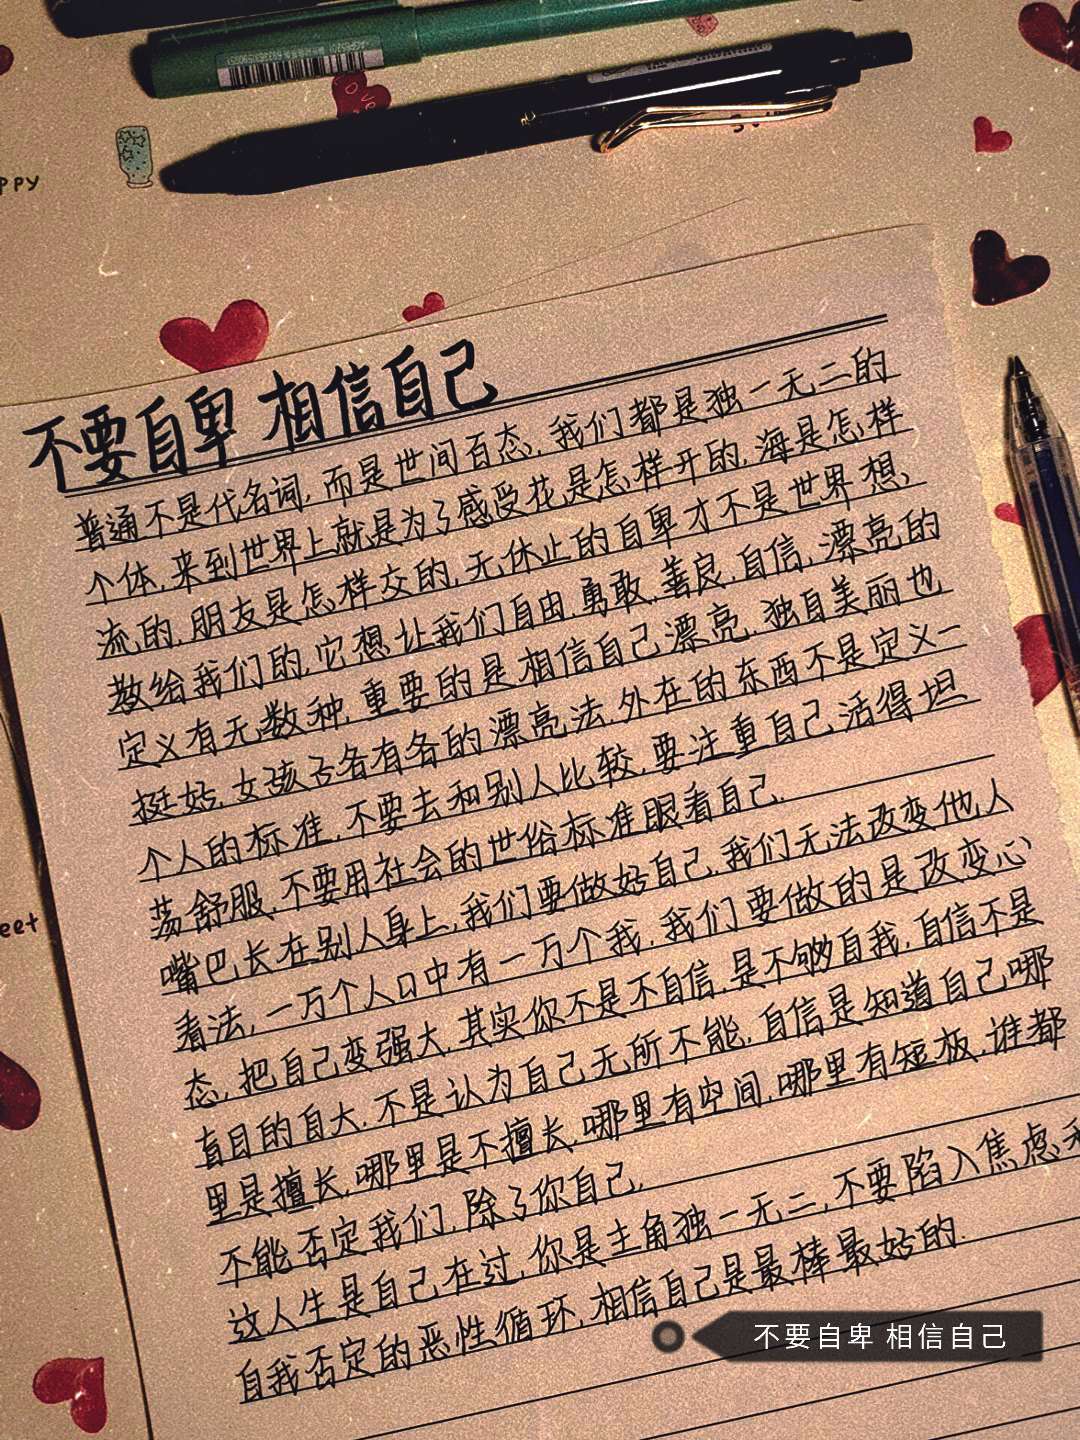 PPY
不要自卑 相信自己
普通不是代名词,而是世间百态,我们都是独一无二的
个体,来到世界上就是为了感受花是怎样开的,海是怎样
流的,朋友是怎样交的,无休止的自卑才不是世界想
教给我们的,它想让我们自由,勇敢,善良,自信,漂亮的
定义有无数种,重要的是相信自己漂亮,独自美丽也
挺好,女孩子各有各的漂亮法,外在的东西不是定义一
个人的标准,不要去和别人比较,要注重自己活得坦
荡舒服,不要用社会的世俗标准眼看自己.
嘴巴长在别人身上,我们要做好自己,我们无法改变他人
看法,一万个人口中有一万个我,我们要做的是改变心
态,把自己变强大,其实你不是不自信,是不够自我,自信不是
盲目的自大,不是认为自己无所不能,自信是知道自己哪
里是擅长,哪里是不擅长,哪里有空间,哪里有短板,谁都
不能否定我们,除了你自己,
这人生是自己在过,你是主角独一无二,不要陷入焦虑和
自我否定的恶性循环,相信自己是最棒最好的.
eet
不要自卑 相信自己